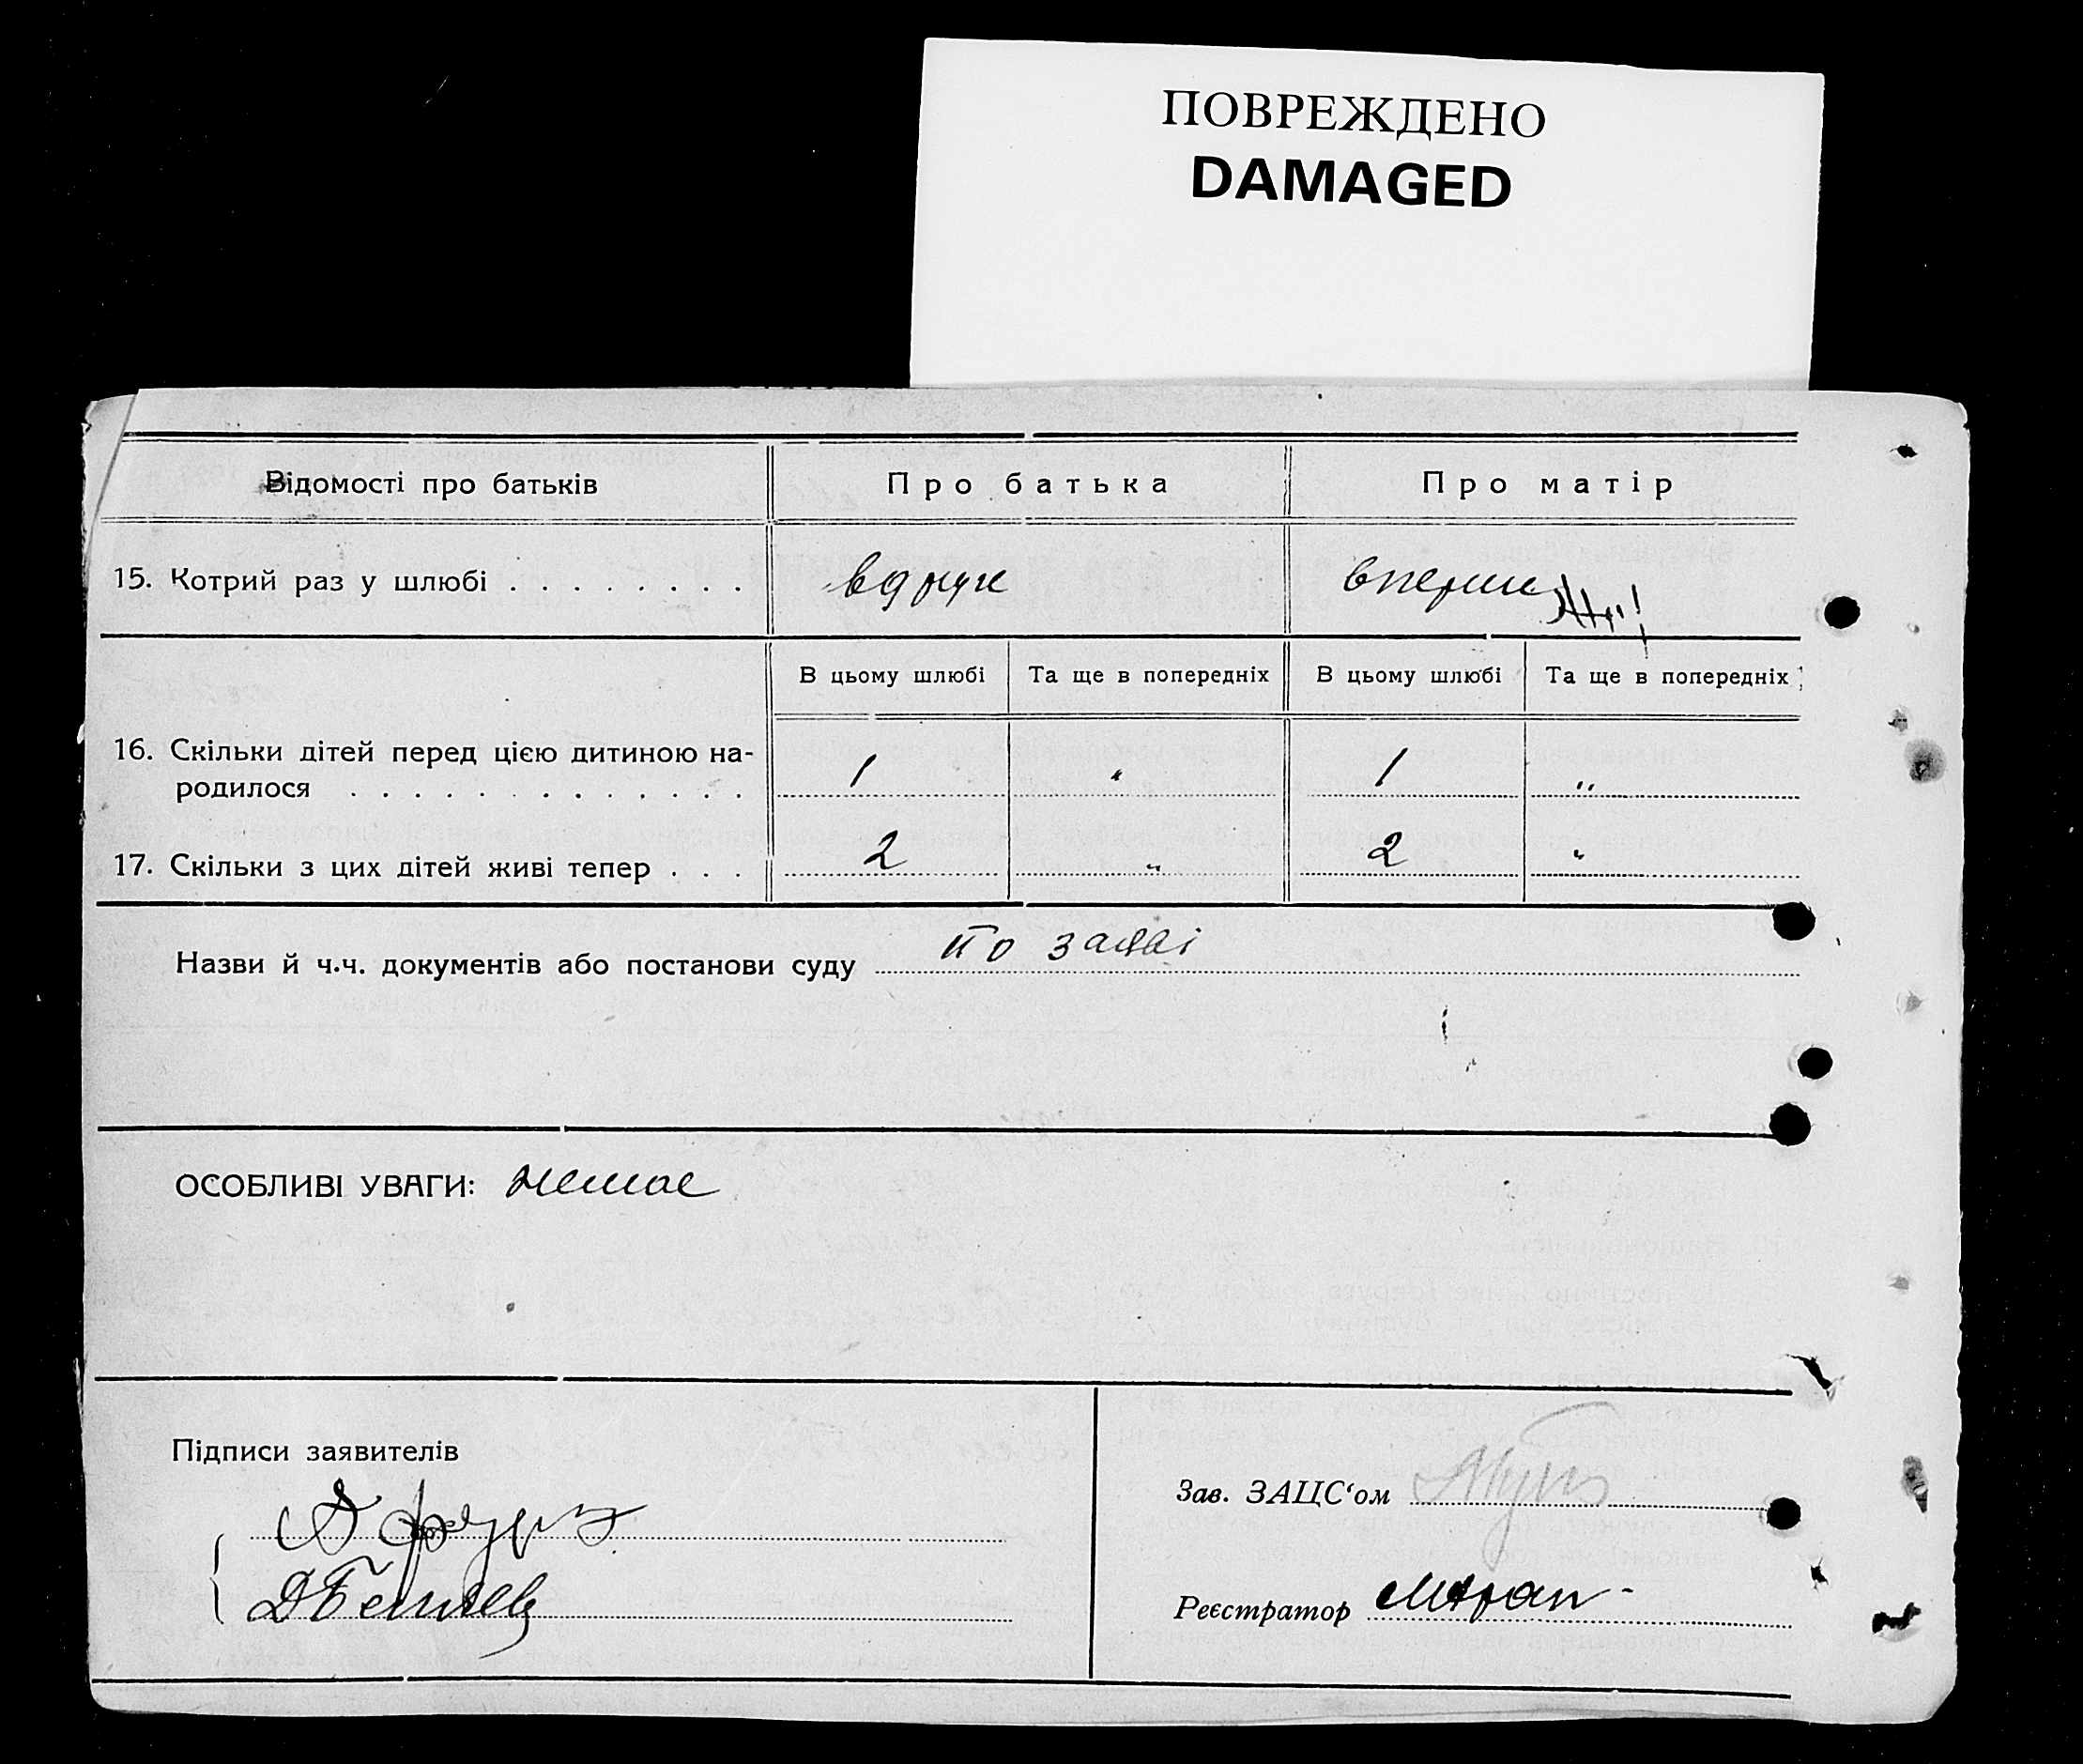 ПОВРЕЖДЕНО
DAMAGED
Відомості про батьків
Про батька
Про матір
15. Котрий раз у шлюбі . . . . . . . .
вдруге
вперше
В цьому шлюбі
Та ще в попередніх
В цьому шлюбі
Та ще в попередніх
16. Скільки дітей перед цією дитиною на-
родилося . . . . . . . . . . . . .
1
"
1
"
17. Скільки з цих дітей живі тепер . . .
2
"
2
"
Назви й ч.ч. документів або постанови суду по заяві
ОСОБЛИВІ УВАГИ: немає
Підписи заявителів
Зав. ЗАЦС‘ом
Реєстратор